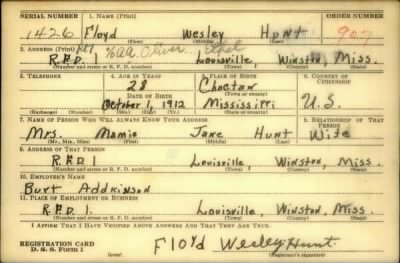 SERIAL NUMBER 1. NAME (Print) ORDER NUMBER
1426 Floyd Wesley Hunt 907
(First) (Middle) (Last)
2. ADDRESS (Print)
R.F.D. 1 Louisville, Winston, Miss.
(Number and street or R. F. D. number) (Town) (County) (State)
3. TELEPHONE 4. AGE IN YEARS 5. PLACE OF BIRTH 6. COUNTRY OF CITIZENSHIP
28 Choctaw
DATE OF BIRTH (Town or county)
October 1, 1912 Mississippi U.S.
(Exchange) (Number) (Mo.) (Day) (Yr.) (State or country)
7. NAME OF PERSON WHO WILL ALWAYS KNOW YOUR ADDRESS 8. RELATIONSHIP OF THAT PERSON
Mrs. Mamie Jane Hunt Wife
(Mr., Mrs., Miss) (First) (Middle) (Last)
9. ADDRESS OF THAT PERSON
R.F.D 1 Louisville, Winston, Miss.
(Number and street or R. F. D. number) (Town) (County) (State)
10. EMPLOYER'S NAME
Burt Addkinson
11. PLACE OF EMPLOYMENT OR BUSINESS
R.F.D. 1. Louisville, Winston, Miss.
(Number and street or R. F. D. number) (Town) (County) (State)
I AFFIRM THAT I HAVE VERIFIED ABOVE ANSWERS AND THAT THEY ARE TRUE.
REGISTRATION CARD
D. S. S. Form 1 Floyd Wesley Hunt.
(over) (Registrant's signature)